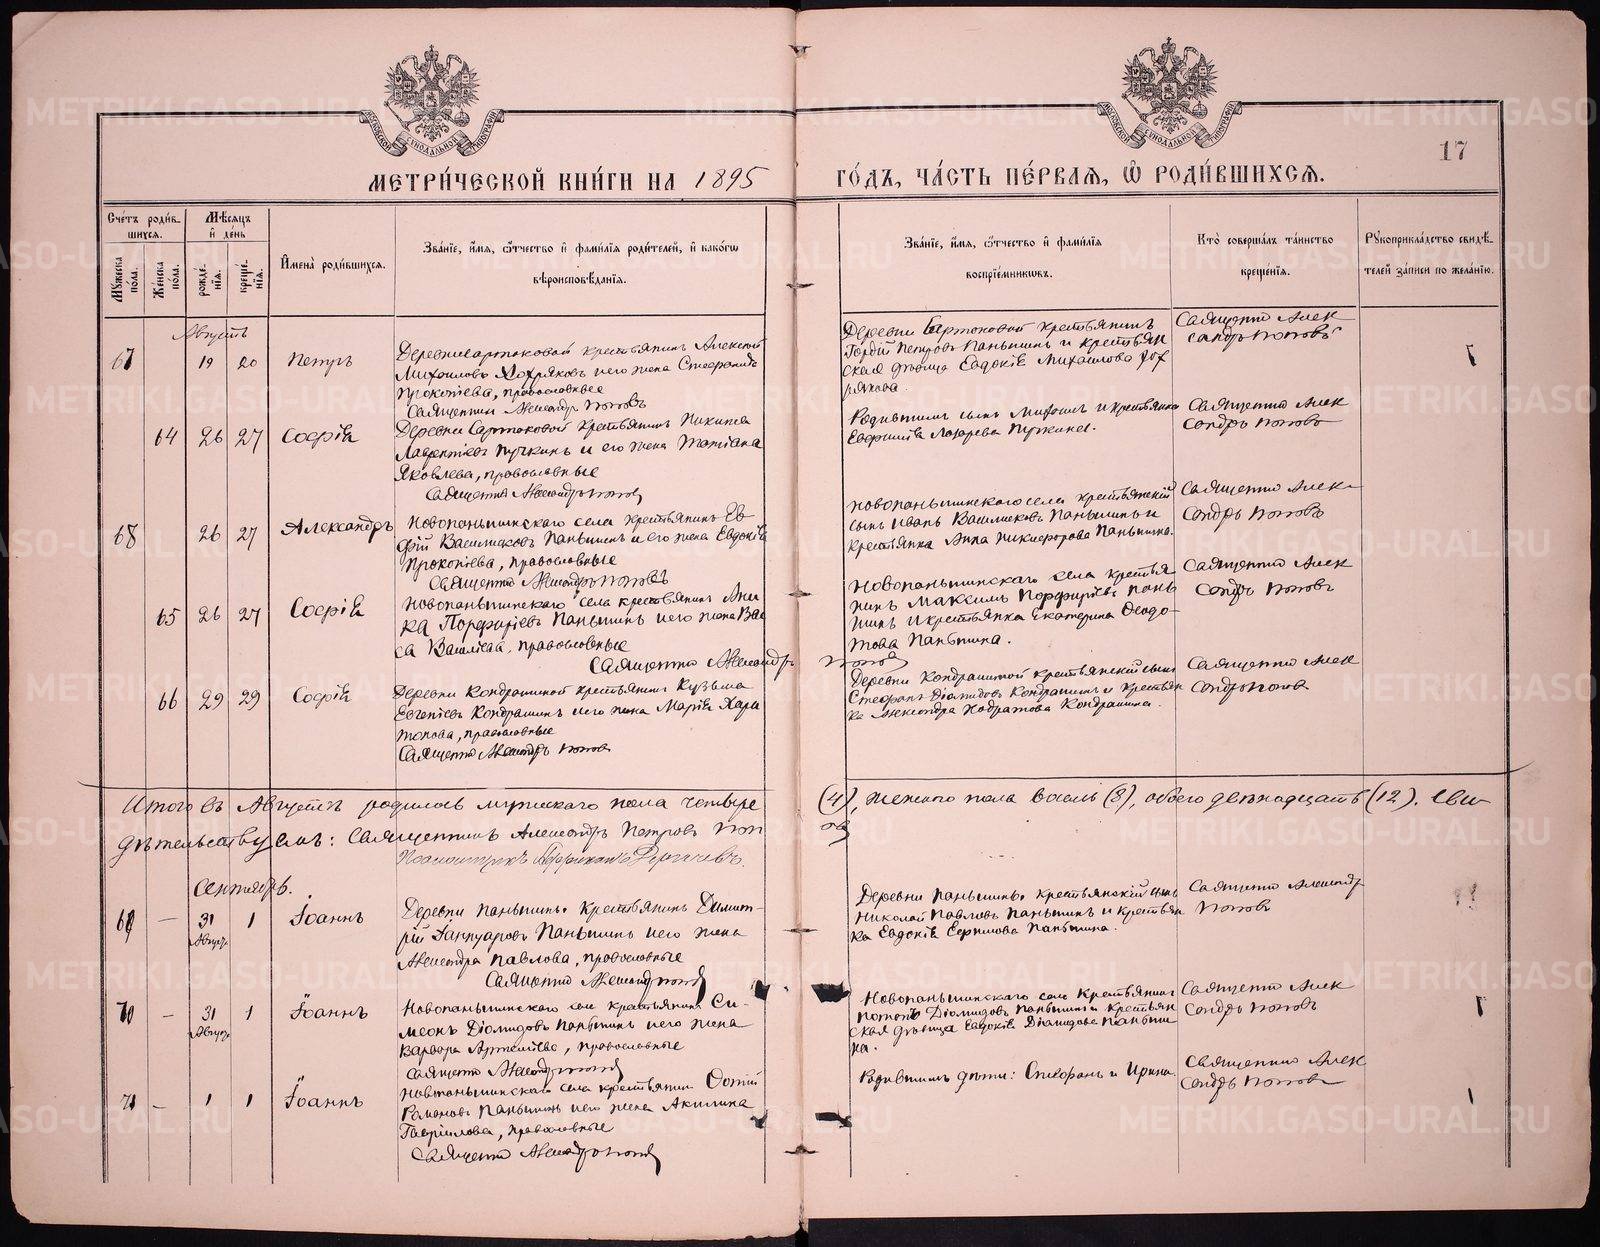 МЕТРИ́ЧЕСКОЙ КНИ́ГИ НА 1895 ГО́ДЪ, ЧА́СТЬ ПЕ́РВАѦ, Ѡ҆ РОДИ́ВШИХСѦ.
17
МОСКОВСКОЙ СѴНОДАЛЬНОЙ ТИПОГРАФІИ
МОСКОВСКОЙ СѴНОДАЛЬНОЙ ТИПОГРАФІИ
Сче́тъ роди́вшихсѧ.
Мꙋ́жеска по́ла.
Же́нска по́ла.
Мѣ́сѧцъ и҆ де́нь
рожде́нїѧ.
креще́нїѧ.
И҆мена̀ роди́вшихсѧ.
Зва́нїе, и҆́мѧ, ѻ҆́тчество и҆ фамилїѧ роди́телей, и҆ како́гѡ вѣроисповѣ́данїѧ.
Зва́нїе, и҆́мѧ, ѻ҆́тчество и҆ фамилїѧ воспрїе́мникѡвъ.
Кто̀ соверша́лъ та́инство креще́нїѧ.
Рꙋкоприкла́дство свидѣ́телей за́писи по жела́нїю.
Августъ
67 19 20 Петръ
Деревни Сартаковой крестьянинъ Алексей
Михаиловъ Хохряковъ и его жена Стефанида
Прокопіева, православные
Священникъ Александръ Поповъ
Деревни Сартаковой крестьянинъ
Гордій Петровъ Паньшинъ и крестьян
ская дѣвица Евдокія Михаилова Хох
рякова.
Священникъ Алек
сандръ Поповъ
64 26 27 Софія
Деревни Сартаковой крестьянинъ Никита
Лаврентіевъ Пучкинъ и его жена Татіана
Яковлева, православные
Священникъ Александръ Поповъ
Родившимъ сынъ Михаилъ и крестьянка
Евфимія Лазарева Пучкина.
Священникъ Алек
сандръ Поповъ
68 26 27 Александръ
Новопаньшинскаго села крестьянинъ Ев
фій Василисковъ Паньшинъ и его жена Евдокія
Прокопіева, православные
Священникъ Александръ Поповъ
Новопаньшинскаго села крестьянскій
сынъ Иванъ Василисковъ Паньшинъ и
крестьянка Анна Никифорова Паньшина.
Священникъ Алек
сандръ Поповъ
65 26 27 Софія
Новопаньшинскаго села крестьянинъ Ани
ка Порфиріевъ Паньшинъ и его жена Вас
са Василіева, православные
Священникъ Александръ Поповъ
Новопаньшинскаго села крестья
нинъ Максимъ Порфиріевъ Пань
шинъ и крестьянка Екатерина Феодо
това Паньшина.
Священникъ Алек
сандръ Поповъ
66 29 29 Софія
Деревни Кондрашиной крестьянинъ Кузьма
Евгеніевъ Кондрашинъ и его жена Марія Хари
тонова, православные
Священникъ Александръ Поповъ
Деревни Кондрашиной крестьянскій сынъ
Стефанъ Діомидовъ Кондрашинъ и крестьян
ка Александра Кондрашина.
Священникъ Алек
сандръ Попова
Итого въ Августѣ родилось мужескаго пола четыре (4), женскаго пола восемь (8), обоего двѣнадцать (12). Сви-
дѣтельствуемъ: Священникъ Александръ Петровъ Попо
овъ
Псаломщикъ
Сентябрь.
69 — 31 Август. 1 Іоаннъ
Деревни Паньшины крестьянинъ Димит-
рій Іаннуаровъ Паньшинъ и его жена
Александра Павлова, православные
Священникъ Александръ Поповъ
Деревни Паньшины крестьянскій сынъ
Николай Павловъ Паньшинъ и крестьян
ка Евдокія Ефимова Паньшина.
Священникъ Александръ
Поповъ
70 — 31 Август. 1 Іоаннъ
Новопаньшинскаго села крестьянинъ Си-
меонъ Діомидовъ Паньшинъ и его жена
Варвара Артеміева, православные
Священникъ Александръ Поповъ
Новопаньшинскаго села крестьянинъ
Потапъ Діомидовъ Паньшинъ и крестьян
ская дѣвица Евдокія Діомидова Паньши
на.
Священникъ Алек
сандръ Поповъ
71 — 1 1 Іоаннъ
Новопаньшинскаго села крестьянинъ Фотій
Романовъ Паньшинъ и его жена Акилина
Гавріилова, православные
Священникъ Александръ Поповъ
Родившимъ дѣти: Стефанъ и Ирина.
Священникъ Алек
сандръ Поповъ
METRIKI.GASO-URAL.RU